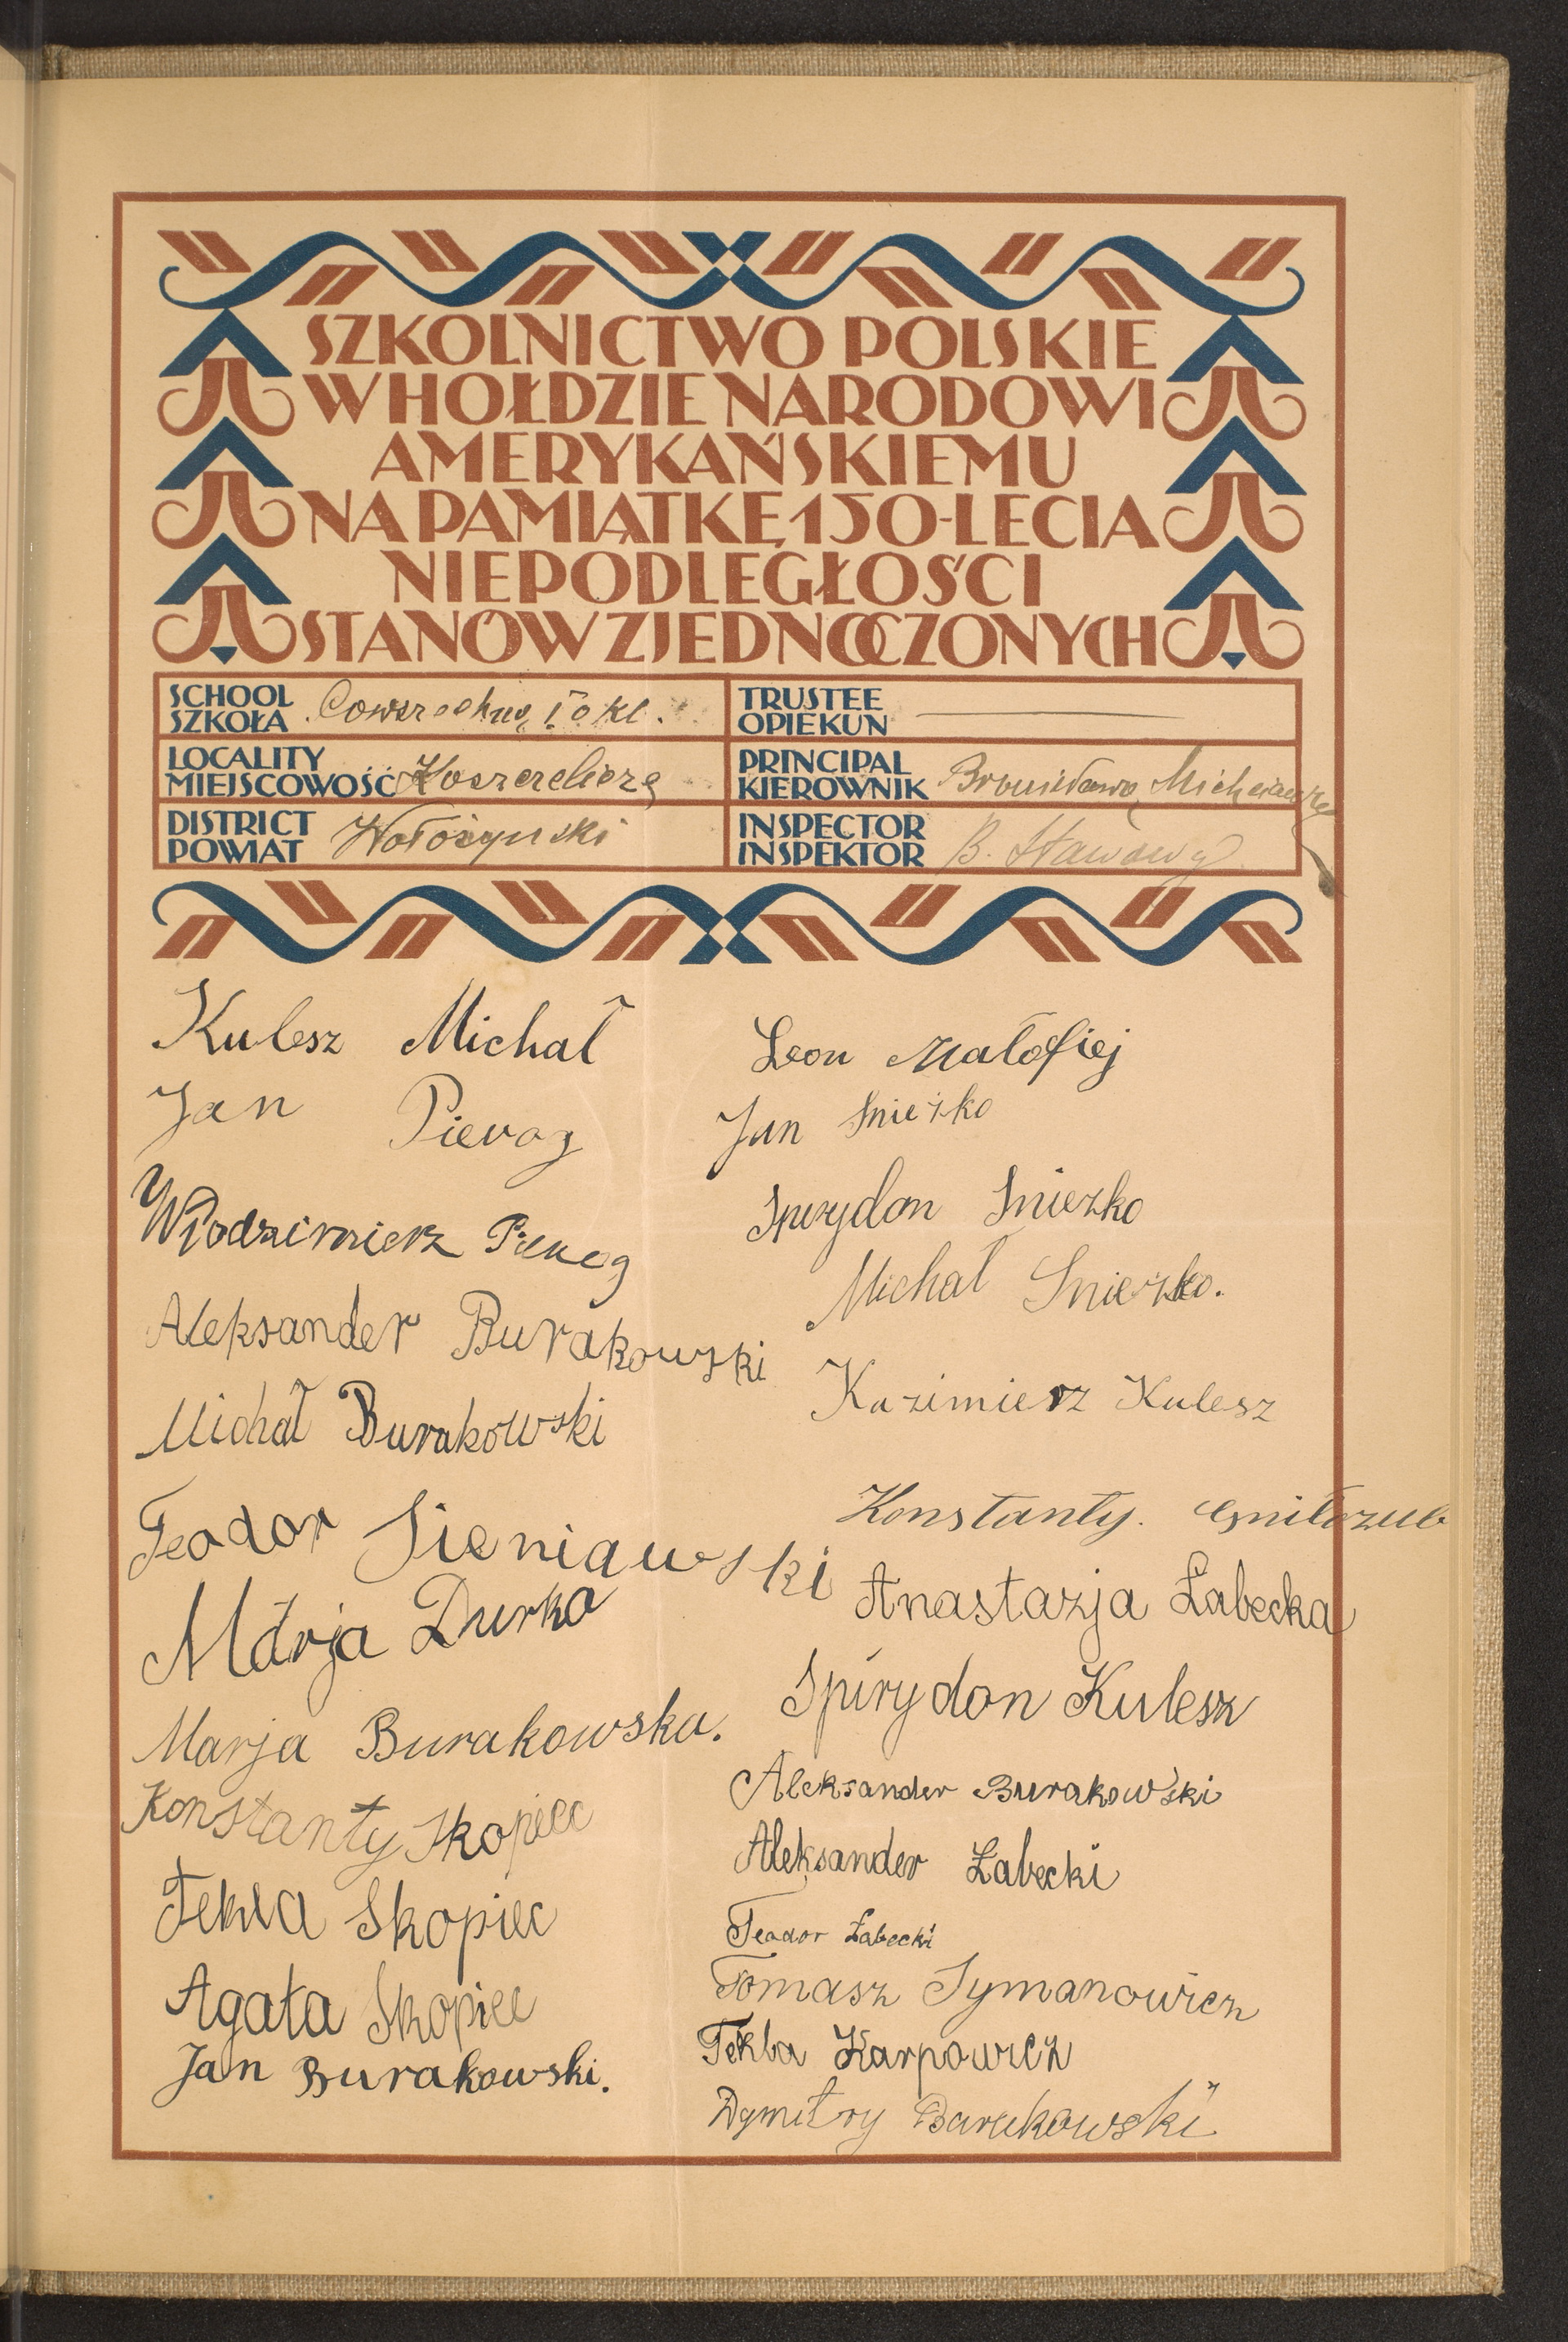 SZKOLNICTWO POLSKIE
W HOŁDZIE NARODOWI
AMERYKAŃSKIEMU
NA PAMIĄTKĘ 150-LECIA
NIEPODLEGŁOŚCI
STANÓW ZJEDNOCZONYCH
SCHOOL
SZKOŁA
TRUSTEE
OPIEKUN
LOCALITY
MIEJSCOWOŚĆ
PRINCIPAL
KIEROWNIK Bronisława
DISTRICT
POWIAT Wołożyński
INSPECTOR
INSPEKTOR B. Stawowy
Kulesz Michał
Jan Pierog
Włodzimierz Pierog
Aleksander Burakowski
Michał Burakowski
Teodor Sieniawski
Marja Durko
Marja Burakowska.
Konstanty Skopiec
Tekla Skopiec
Agata Skopiec
Jan Burakowski.
Leon Małofiej
Jan Snieżko
Spirydon Sniezko
Michał Snieżko.
Kazimierz Kulesz
Konstanty. Gniłozub
Anastazja Łabecka
Spirydon Kulesz
Aleksander Burakowski
Aleksander Łabecki
Teodor Łabecki
Tomasz Symanowicz
Tekla Karpowicz
Dymitry Barukowski